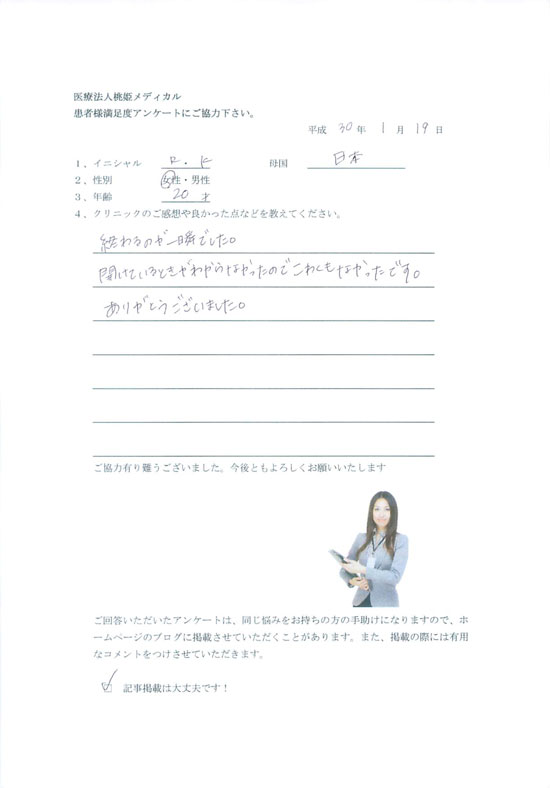 医療法人桃姫メディカル
患者様満足度アンケートにご協力下さい。
平成 30 年 1 月 19 日
1、イニシャル R・K 母国 日本
2、性別 女性・男性
3、年齢 20 才
4、クリニックのご感想や良かった点などを教えてください。
終わるのが一瞬でした。
開けているときがわからなかったのでこわくもなかったです。
ありがとうございました。
ご協力有り難うございました。今後ともよろしくお願いいたします
ご回答いただいたアンケートは、同じ悩みをお持ちの方の手助けになりますので、ホ
ームページのブログに掲載させていただくことがあります。また、掲載の際には有用
なコメントをつけさせていただきます。
記事掲載は大丈夫です！